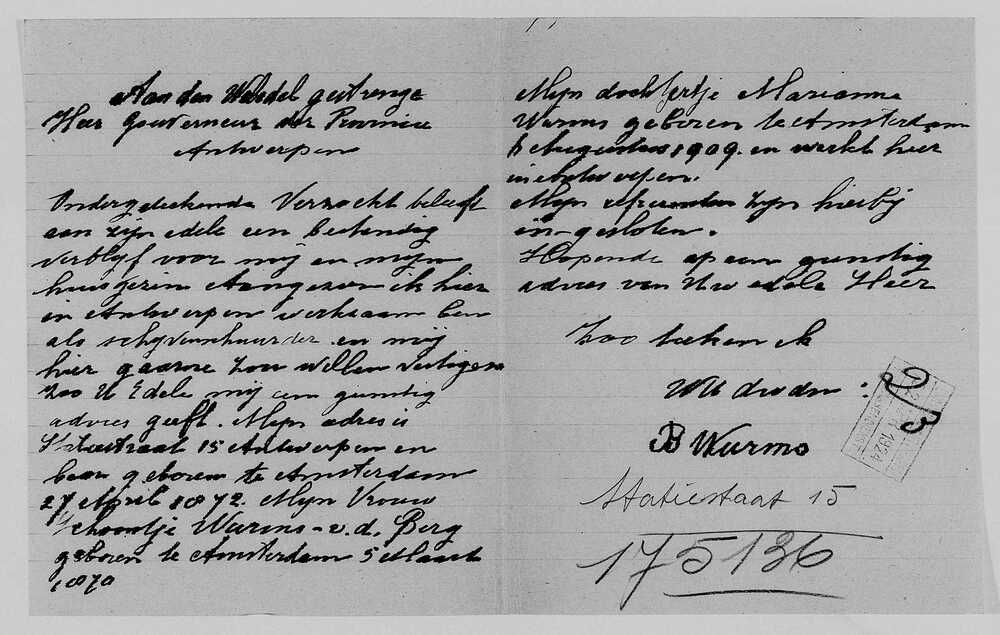 Aan den Weledel gestrenge
Heer Gouverneur der Provincie
Antwerpen
Ondergeteekende Verzocht beleeft
aan zijn edele een bestendig
verblijf voor mij en mijn
huisgezin Aangezien ik hier
in Antwerpen werkzaam ben
als schijvenschuurder en mij
hier gaarne zou willen vestigen
zoo U Edele mij een gunstig
advies geeft. Mijn adres is
Statiestraat 15 Antwerpen en
ben geboren te Amsterdam
27 April 1872. Mijn Vrouw
Schoontje Warms-v.d. Berg
geboren te Amsterdam 5 Maart
1870
Mijn dochtertje Marianne
Warms geboren te Amsterdam
1909. en werkt hier
in
Mijn zijn hierbij
in-gesloten.
Hopende op een gunstig
advies van Uw edele Heer
Zoo teeken ik
UW
B Warms
Statiestaat 15
175136
2/3
1924